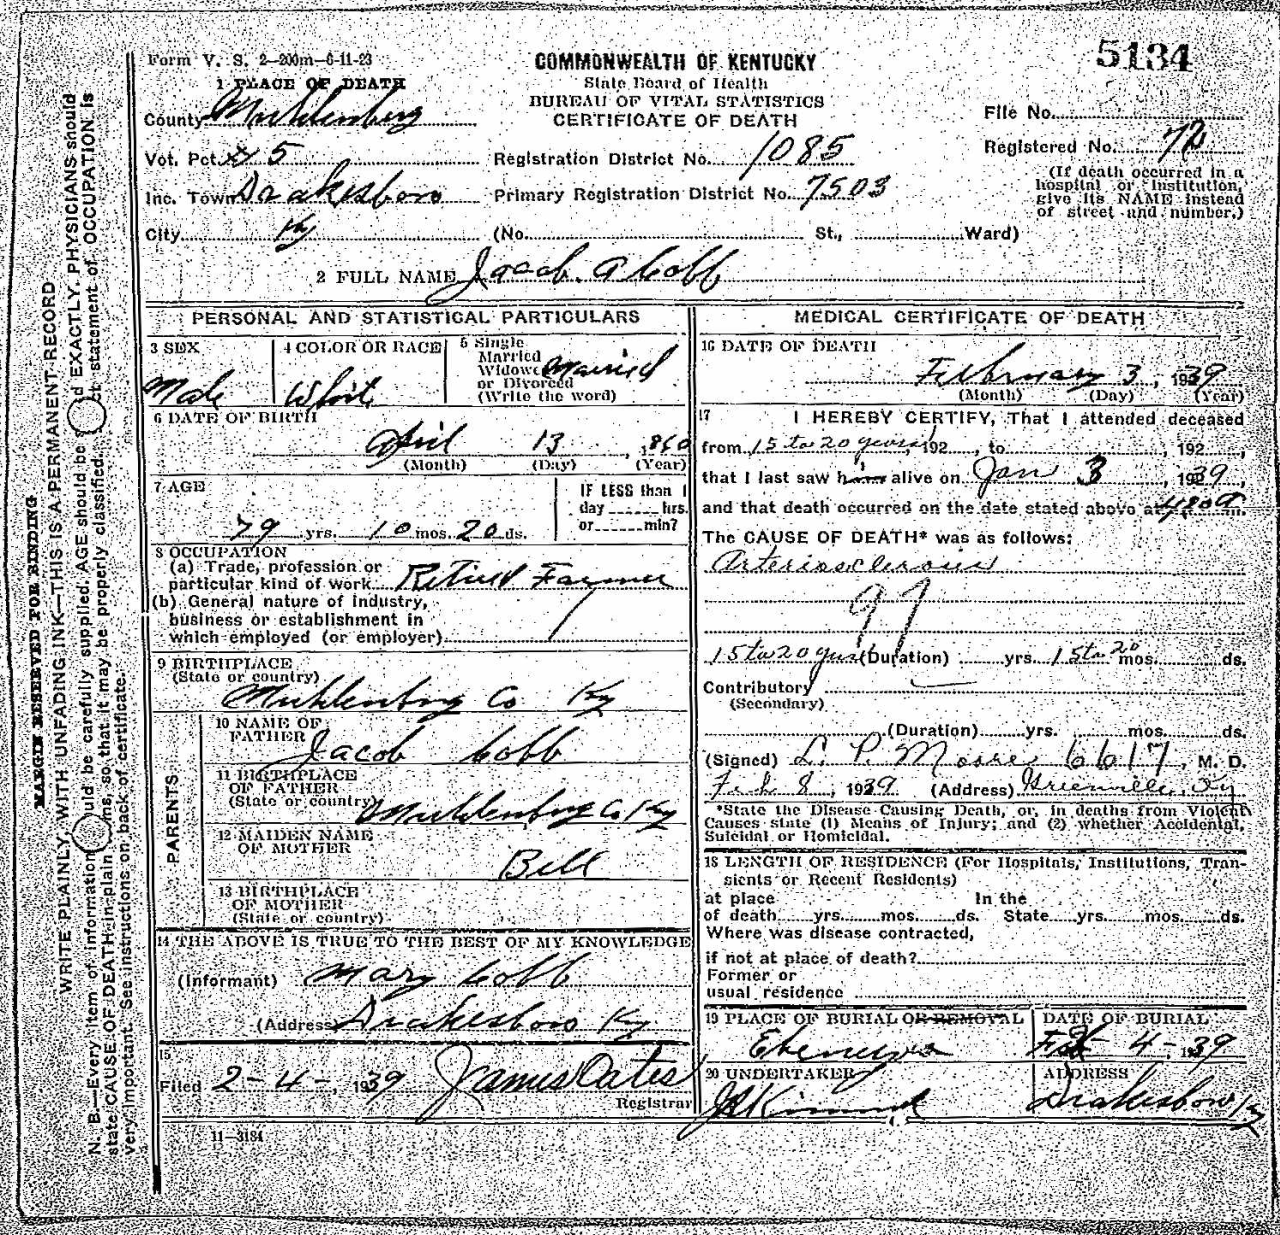 Form V. S. 2—200m—6-11-23
COMMONWEALTH OF KENTUCKY
5134
State Board of Health
BUREAU OF VITAL STATISTICS
CERTIFICATE OF DEATH
1 PLACE OF DEATH
County Muhlenberg
File No.
Vot. Pct. 5
Registration District No. 1085
Registered No. 72
Inc. Town Drakesboro
Primary Registration District No. 7503
(If death occurred in a hospital or institution, give its NAME instead of street and number.)
City Ky
(No. St., Ward)
2 FULL NAME Jacob. A Cobb
PERSONAL AND STATISTICAL PARTICULARS
3 SEX
Male
4 COLOR OR RACE
White
5 Single
Married
Widowed
or Divorced
(Write the word)
Married
6 DATE OF BIRTH
April 13, 1860
(Month) (Day) (Year)
7 AGE
79 yrs. 10 mos. 20 ds.
IF LESS than 1
day hrs.
or min?
8 OCCUPATION
(a) Trade, profession or
particular kind of work Retired Farmer
(b) General nature of industry,
business or establishment in
which employed (or employer)
9 BIRTHPLACE
(State or country)
Muhlenberg Co Ky
PARENTS
10 NAME OF
FATHER
Jacob Cobb
11 BIRTHPLACE
OF FATHER
(State or country)
Muhlenberg Co Ky
12 MAIDEN NAME
OF MOTHER
Bell
13 BIRTHPLACE
OF MOTHER
(State or country)
14 THE ABOVE IS TRUE TO THE BEST OF MY KNOWLEDGE
(Informant) Mary Cobb
(Address) Drakesboro Ky
15
Filed 2-4-1939 James Oates
Registrar
11—3184
MEDICAL CERTIFICATE OF DEATH
16 DATE OF DEATH
February 3, 1939
(Month) (Day) (Year)
17 I HEREBY CERTIFY, That I attended deceased
from 15 to 20 years, 192 , to , 192 ,
that I last saw him alive on Jan 3, 1939,
and that death occurred on the date stated above at m.
The CAUSE OF DEATH* was as follows:
Arteriosclerosis
97
15 to 20 years (Duration) yrs. 15 to 20 mos. ds.
Contributory
(Secondary)
(Duration) yrs. mos. ds.
(Signed) L. P. Moore 6617, M. D.
Feb 8, 1939 (Address) Greenville, Ky
*State the Disease Causing Death, or, in deaths from Violent
Causes state (1) Means of Injury; and (2) whether Accidental,
Suicidal or Homicidal.
18 LENGTH OF RESIDENCE (For Hospitals, Institutions, Tran-
sients or Recent Residents)
at place In the
of death yrs. mos. ds. State yrs. mos. ds.
Where was disease contracted,
if not at place of death?
Former or
usual residence
19 PLACE OF BURIAL OR REMOVAL
Ebenezer
DATE OF BURIAL
4-1939
20 UNDERTAKER
ADDRESS
Drakesboro Ky
MARGIN RESERVED FOR BINDING
WRITE PLAINLY, WITH UNFADING INK—THIS IS A PERMANENT RECORD
N. B.—Every item of information should be carefully supplied. AGE should be stated EXACTLY. PHYSICIANS should
state CAUSE OF DEATH in plain terms, so that it may be properly classified. Exact statement of OCCUPATION is
very important. See instructions on back of certificate.